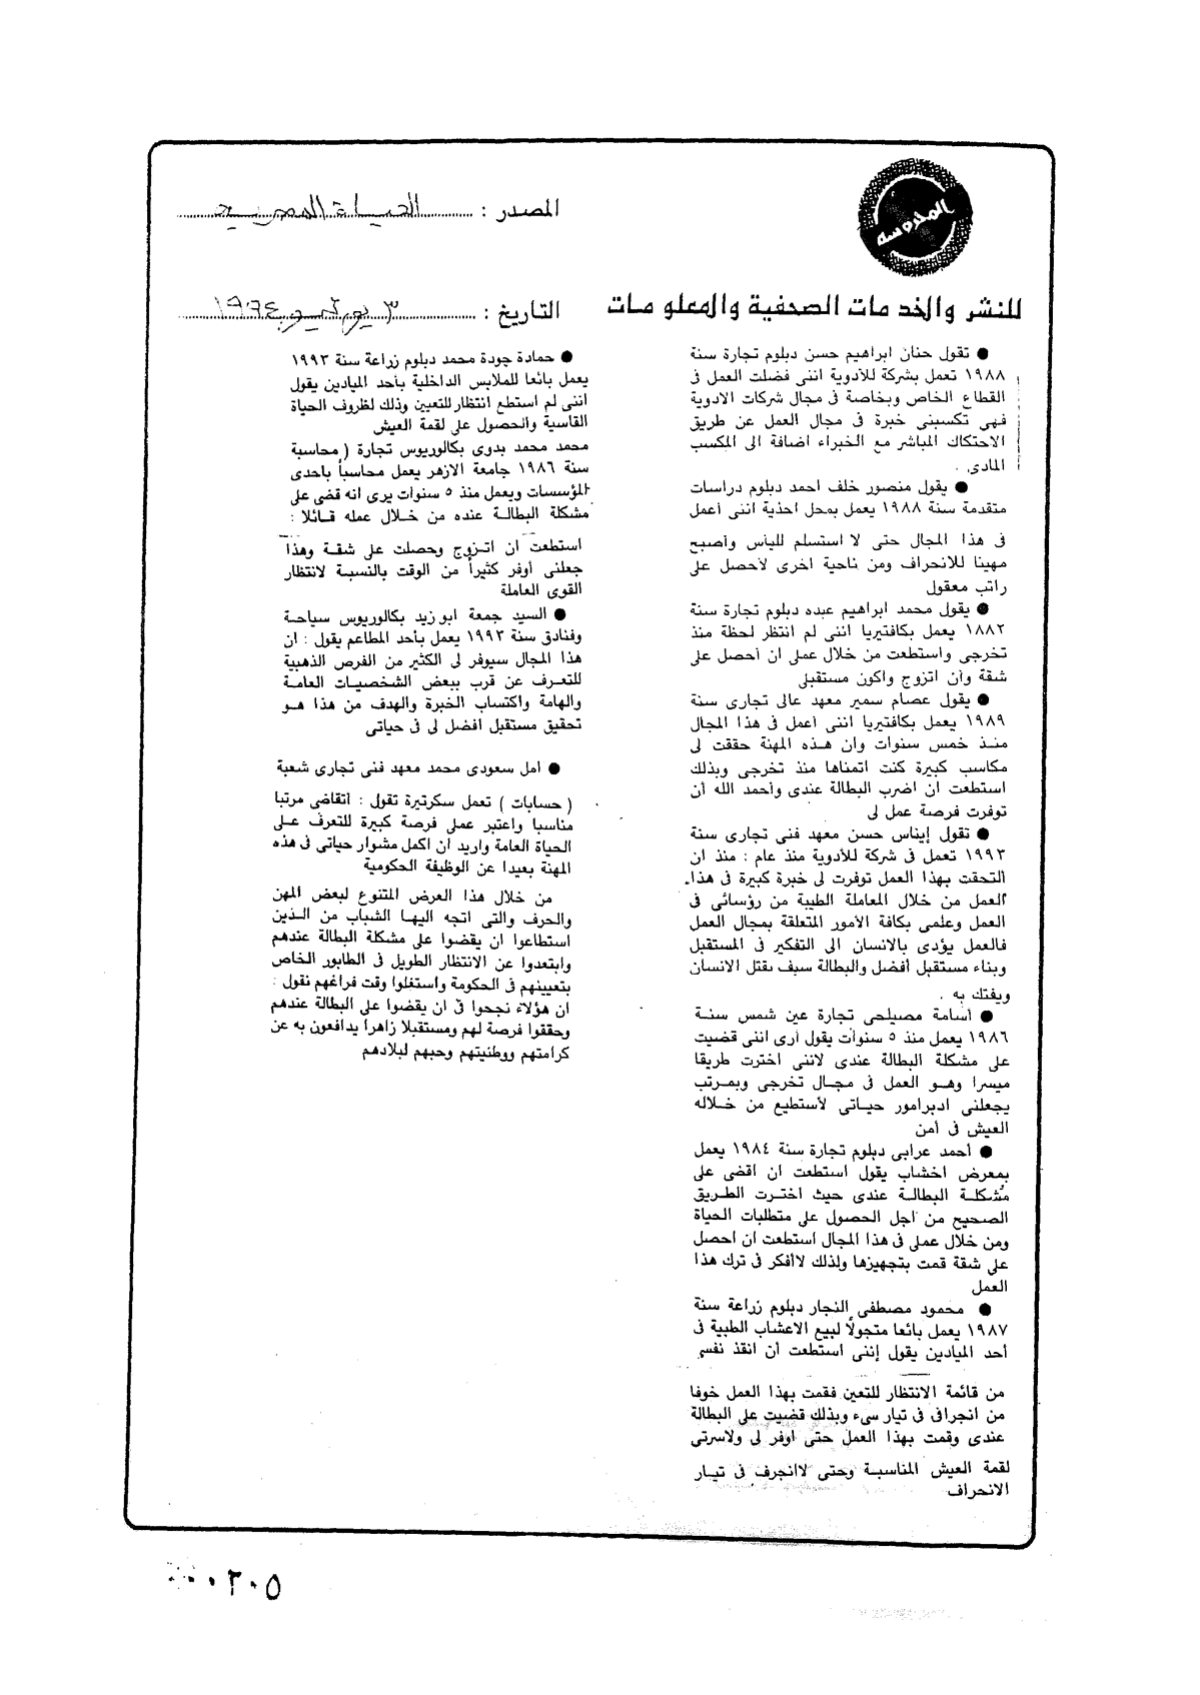 المحروسه
المصدر : الحياة المصرية
للنشر والخدمات الصحفية والمعلومات
التاريخ : ٣ يونيو ١٩٩٤
● تقول حنان ابراهيم حسن دبلوم تجارة سنة
١٩٨٨ تعمل بشركة للأدوية اننى فضلت العمل فى
القطاع الخاص وبخاصة فى مجال شركات الادوية
فهى تكسبنى خبرة فى مجال العمل عن طريق
الاحتكاك المباشر مع الخبراء اضافة الى المكسب
المادى .
● يقول منصور خلف أحمد دبلوم دراسات
متقدمة سنة ١٩٨٨ يعمل بمحل احذية اننى أعمل
فى هذا المجال حتى لا استسلم لليأس وأصبح
مهينا للانحراف ومن ناحية اخرى لأحصل على
راتب معقول
● يقول محمد ابراهيم عبده دبلوم تجارة سنة
١٨٨٢ يعمل بكافتيريا اننى لم انتظر لحظة منذ
تخرجى واستطعت من خلال عملى ان أحصل على
شقة وأن اتزوج واكون مستقبلى
● يقول عصام سمير معهد عالى تجارى سنة
١٩٨٩ يعمل بكافتيريا اننى أعمل فى هذا المجال
منذ خمس سنوات وان هذه المهنة حققت لى
مكاسب كبيرة كنت اتمناها منذ تخرجى وبذلك
استطعت ان اضرب البطالة عندى وأحمد الله أن
توفرت فرصة عمل لى
● تقول إيناس حسن معهد فنى تجارى سنة
١٩٩٣ تعمل فى شركة للأدوية منذ عام : منذ ان
التحقت بهذا العمل توفرت لى خبرة كبيرة فى هذا
العمل من خلال المعاملة الطيبة من رؤسائى فى
العمل وعلمى بكافة الأمور المتعلقة بمجال العمل
فالعمل يؤدى بالانسان الى التفكير فى المستقبل
وبناء مستقبل أفضل والبطالة سيف يقتل الانسان
ويفتك به .
● أسامة مصيلحى تجارة عين شمس سنة
١٩٨٦ يعمل منذ ٥ سنوات يقول أرى اننى قضيت
على مشكلة البطالة عندى لاننى اخترت طريقا
ميسرا وهو العمل فى مجال تخرجى وبمرتب
يجعلنى ادبرامور حياتى لأستطيع من خلاله
العيش فى أمن
● أحمد عرابى دبلوم تجارة سنة ١٩٨٤ يعمل
بمعرض اخشاب يقول استطعت ان اقضى على
مشكلة البطالة عندى حيث اخترت الطريق
الصحيح من اجل الحصول على متطلبات الحياة
ومن خلال عملى فى هذا المجال استطعت ان احصل
على شقة قمت بتجهيزها ولذلك لاأفكر فى ترك هذا
العمل
● محمود مصطفى النجار دبلوم زراعة سنة
١٩٨٧ يعمل بائعا متجولًا لبيع الاعشاب الطبية فى
أحد الميادين يقول إننى استطعت أن انقذ نفسى
من قائمة الانتظار للتعين فقمت بهذا العمل خوفا
من انجرافى فى تيار سىء وبذلك قضيت على البطالة
عندى وقمت بهذا العمل حتى أوفر لى ولاسرتى
لقمة العيش المناسبة وحتى لاانجرف فى تيار
الانحراف
● حمادة جودة محمد دبلوم زراعة سنة ١٩٩٣
يعمل بائعا للملابس الداخلية بأحد الميادين يقول
اننى لم استطع انتظار للتعيين وذلك لظروف الحياة
القاسية والحصول على لقمة العيش
محمد محمد بدوى بكالوريوس تجارة ( محاسبة
سنة ١٩٨٦ جامعة الازهر يعمل محاسباً باحدى
المؤسسات ويعمل منذ ٥ سنوات يرى انه قضى على
مشكلة البطالة عنده من خلال عمله قائلا :
استطعت ان اتزوج وحصلت على شقة وهذا
جعلنى أوفر كثيراً من الوقت بالنسبة لانتظار
القوى العاملة
● السيد جمعة ابو زيد بكالوريوس سياحة
وفنادق سنة ١٩٩٣ يعمل بأحد المطاعم يقول : ان
هذا المجال سيوفر لى الكثير من الفرص الذهبية
للتعرف عن قرب ببعض الشخصيات العامة
والهامة واكتساب الخبرة والهدف من هذا هو
تحقيق مستقبل افضل لى فى حياتى
● أمل سعودى محمد معهد فنى تجارى شعبة
( حسابات ) تعمل سكرتيرة تقول : اتقاضى مرتبا
مناسبا واعتبر عملى فرصة كبيرة للتعرف على
الحياة العامة واريد ان اكمل مشوار حياتى فى هذه
المهنة بعيدا عن الوظيفة الحكومية
من خلال هذا العرض المتنوع لبعض المهن
والحرف والتى اتجه اليها الشباب من الذين
استطاعوا ان يقضوا على مشكلة البطالة عندهم
وابتعدوا عن الانتظار الطويل فى الطابور الخاص
بتعيينهم فى الحكومة واستغلوا وقت فراغهم نقول :
ان هؤلاء نجحوا فى ان يقضوا على البطالة عندهم
وحققوا فرصة لهم ومستقبلا زاهرا يدافعون به عن
كرامتهم ووطنيتهم وحبهم لبلادهم
٠٢٠٥